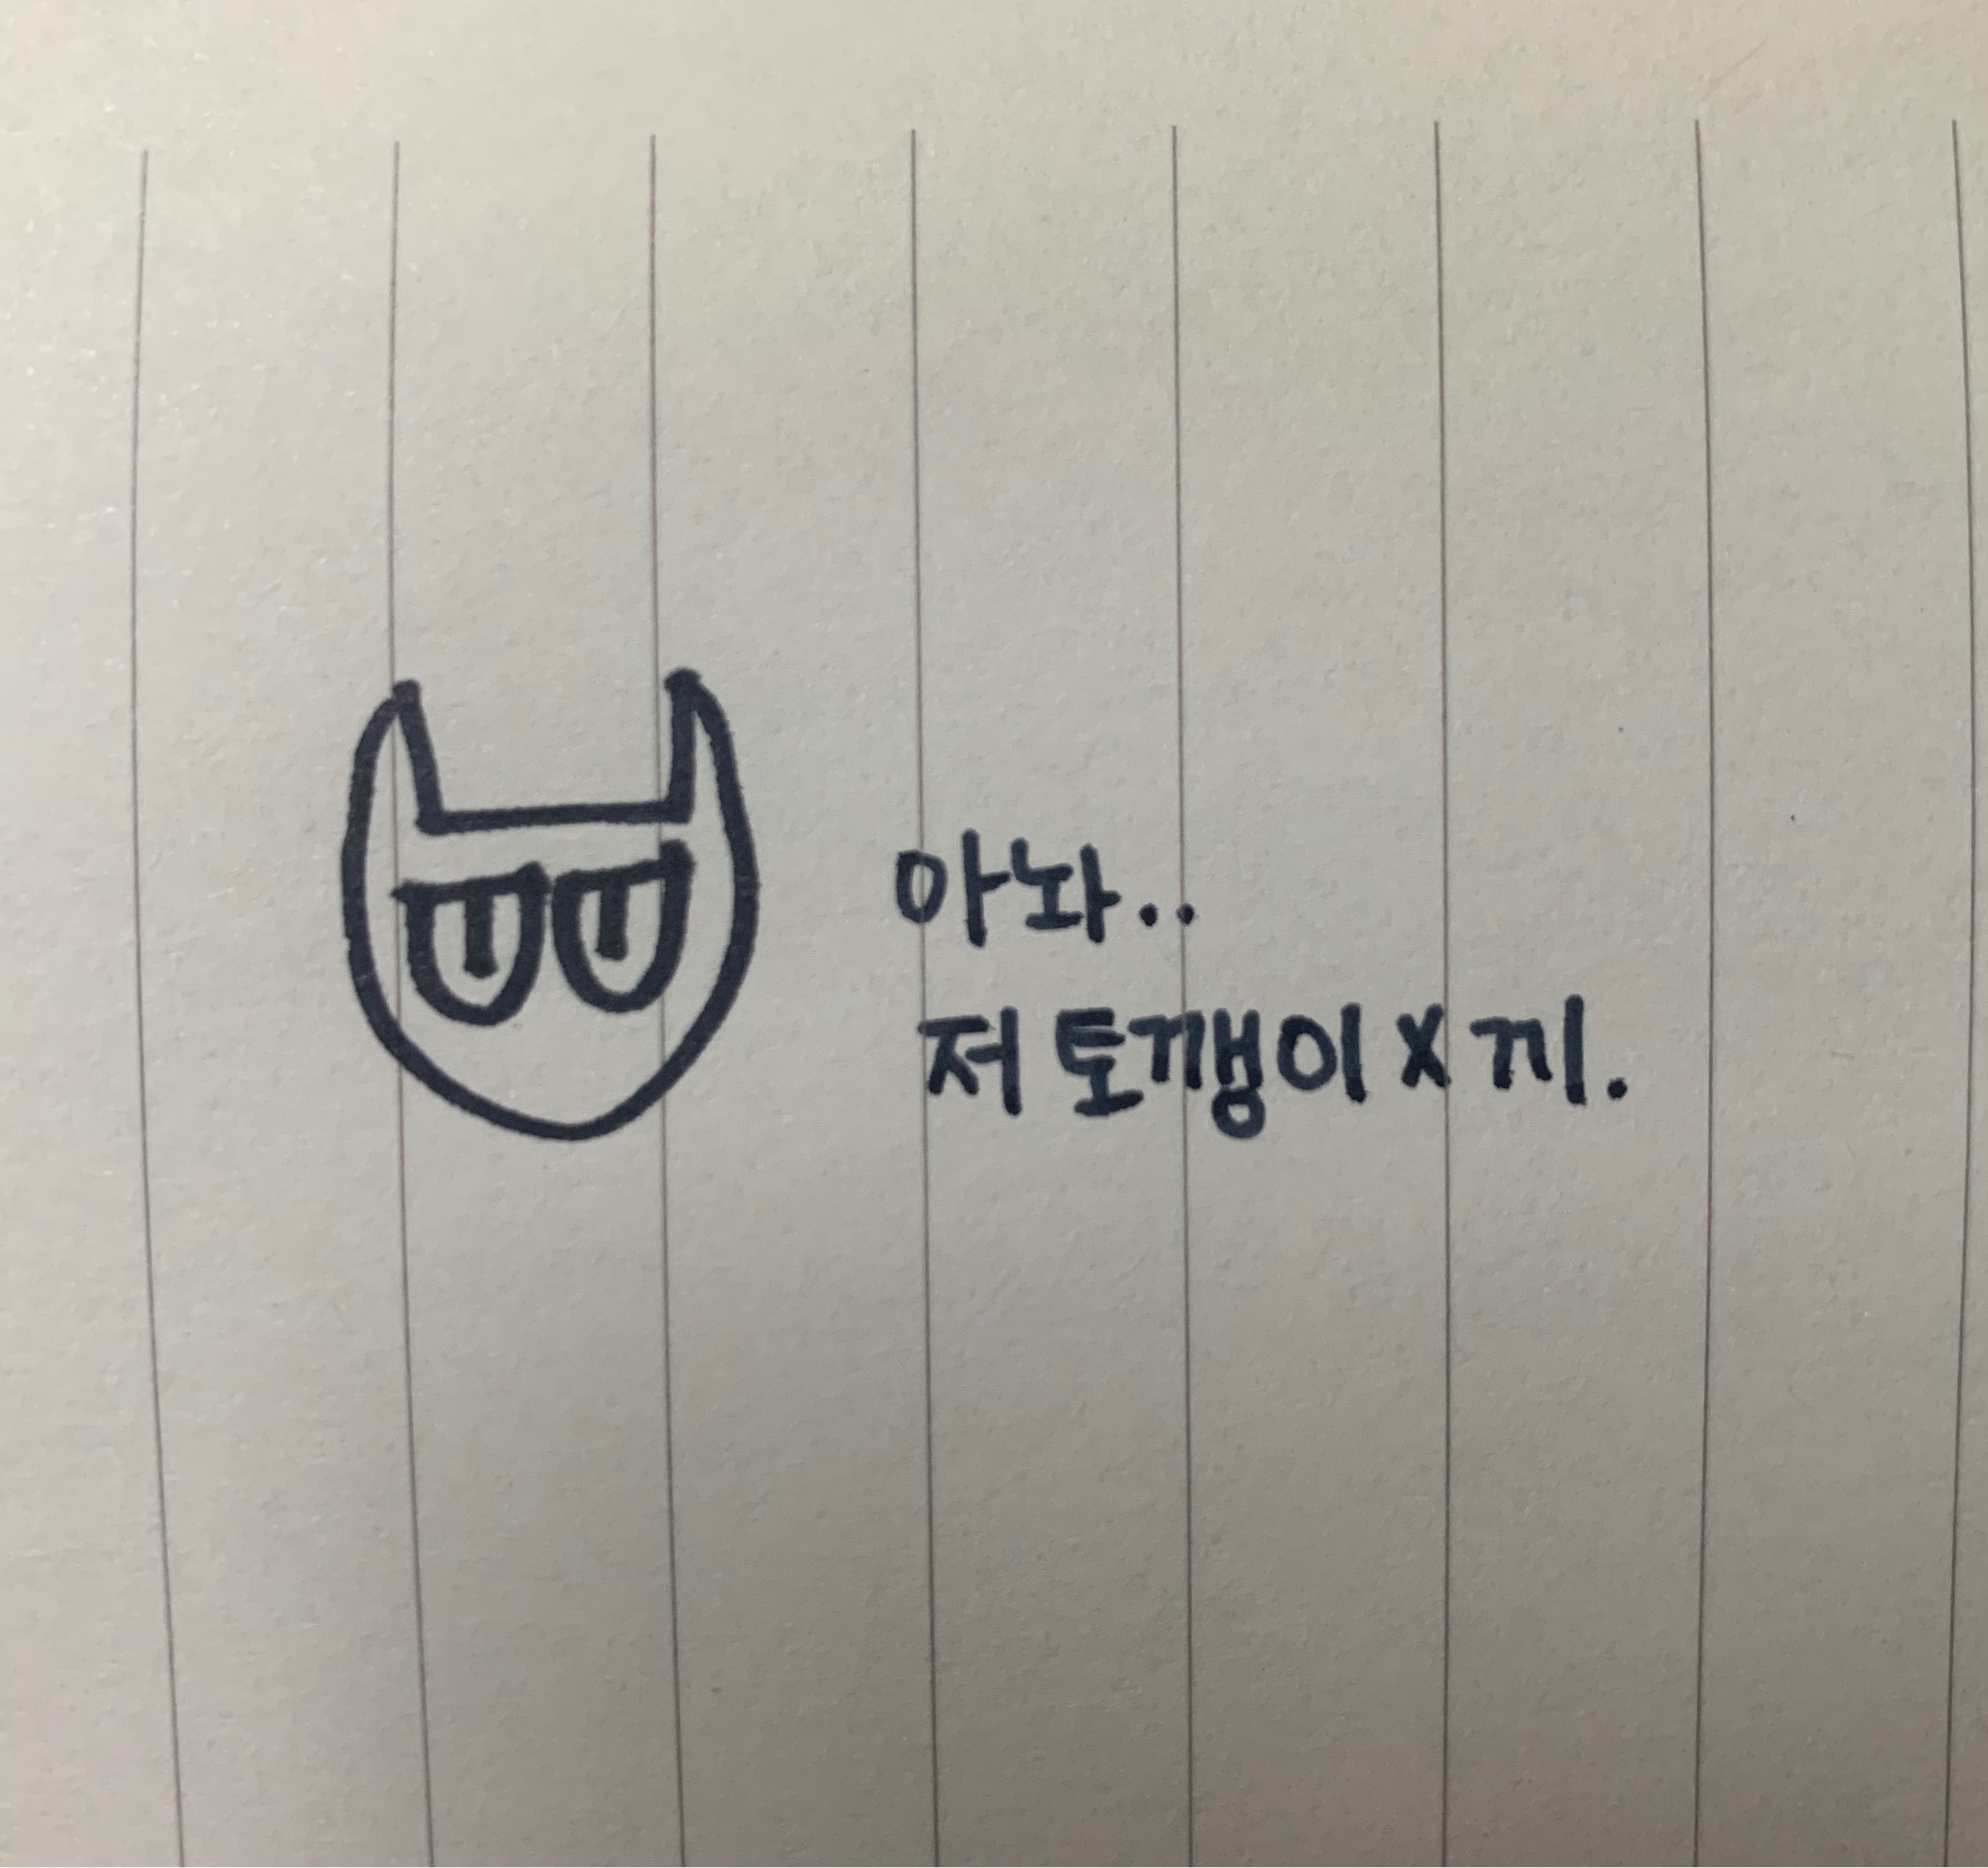 아놔..
저 토깽이 X끼.